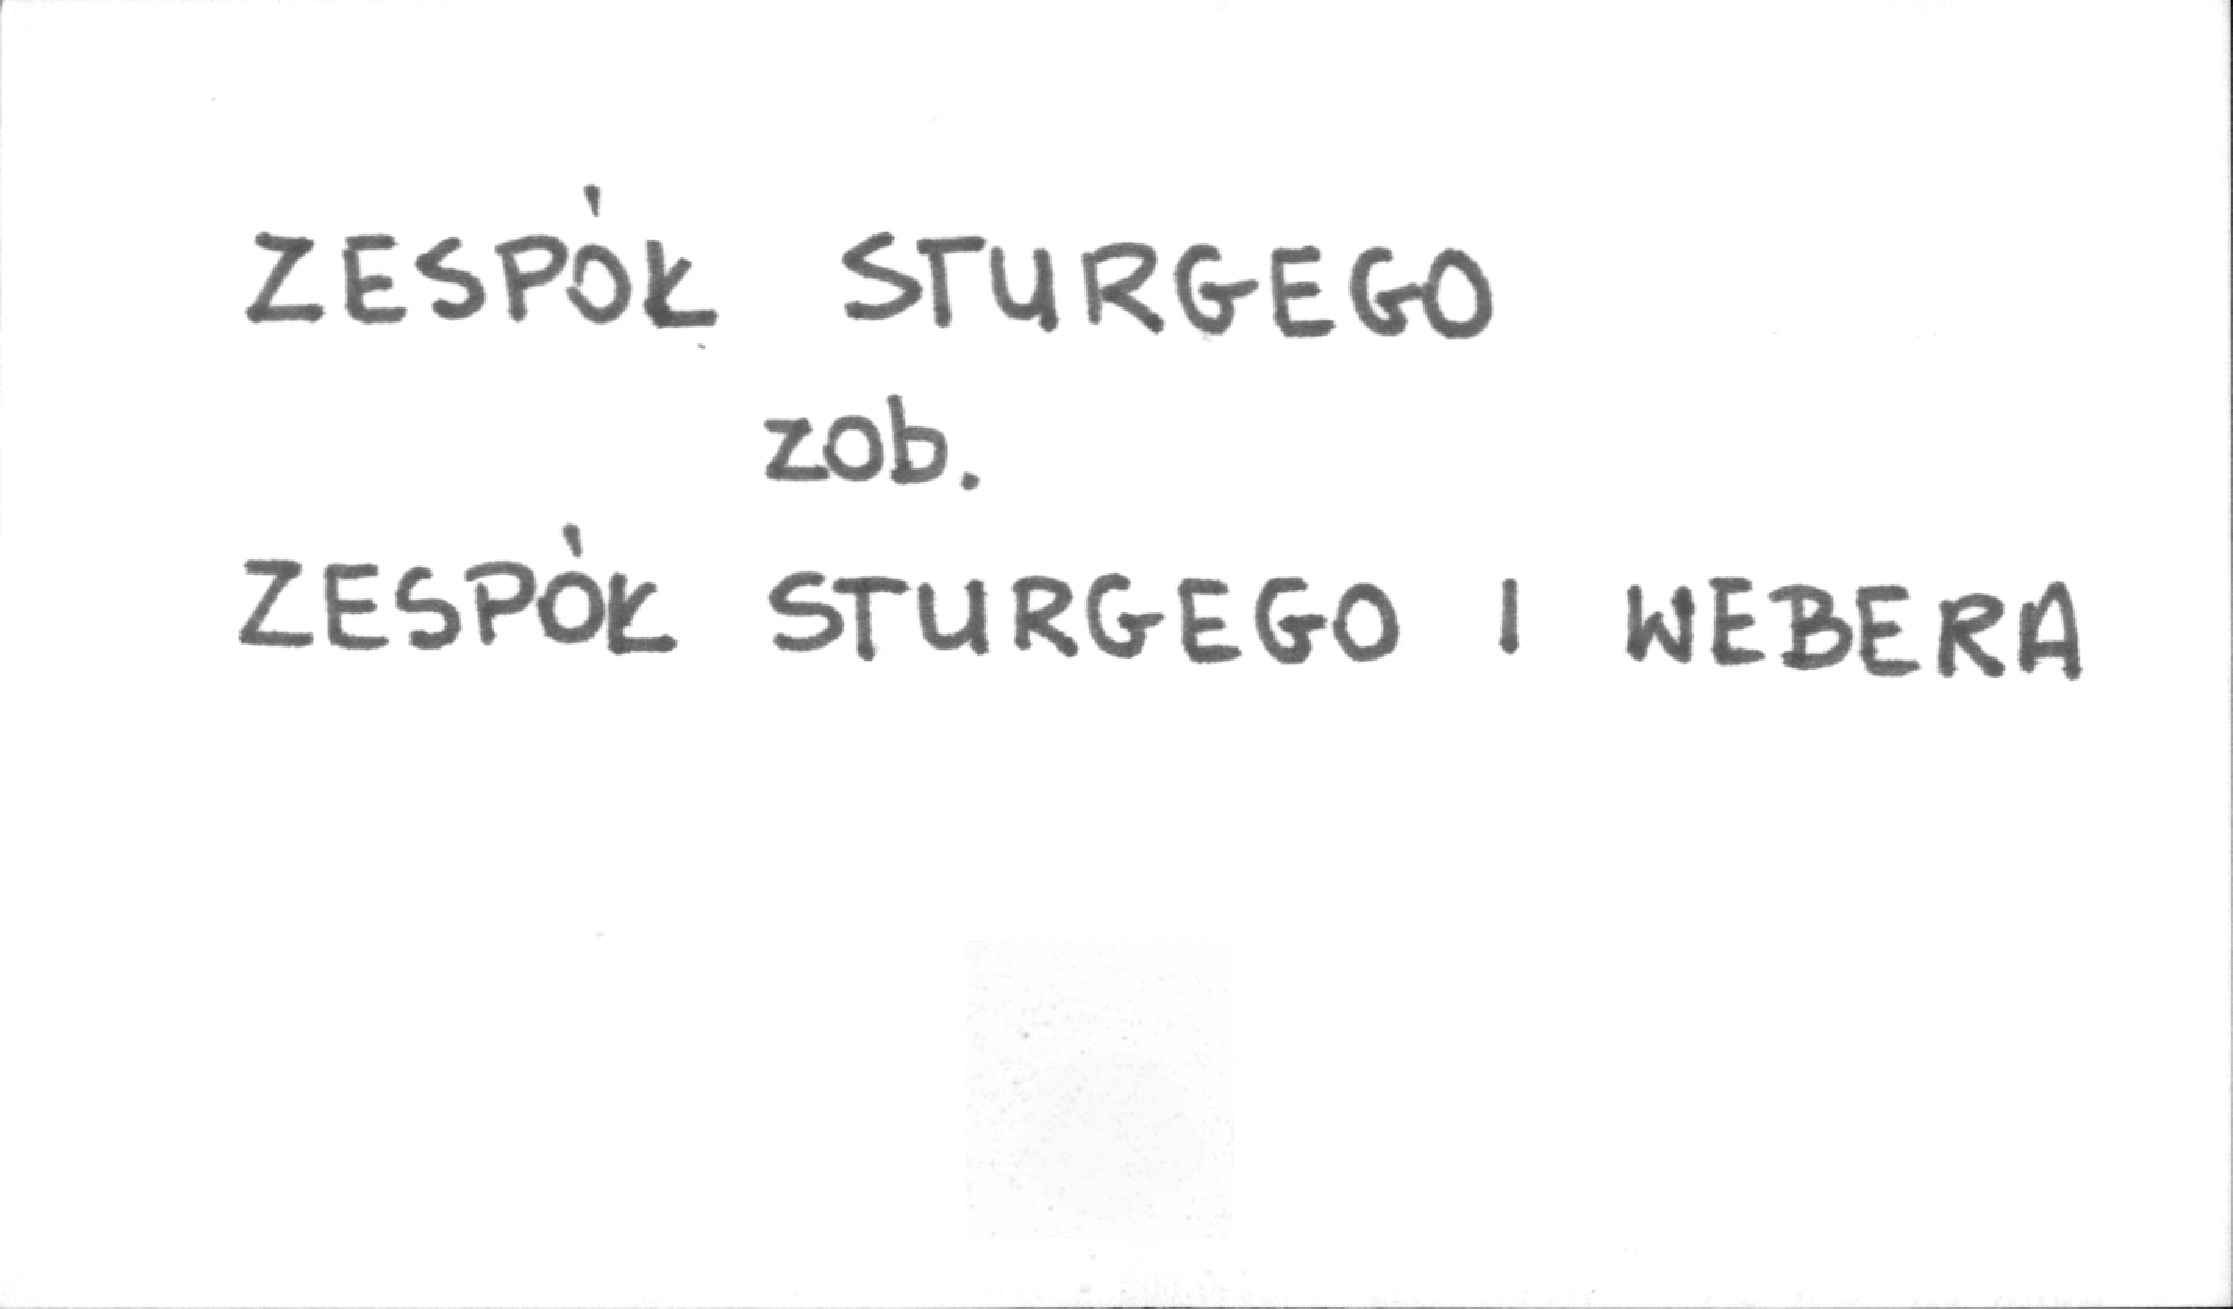 ZESPÓŁ STURGEGO
zob.
ZESPÓŁ STURGEGO I WEBERA